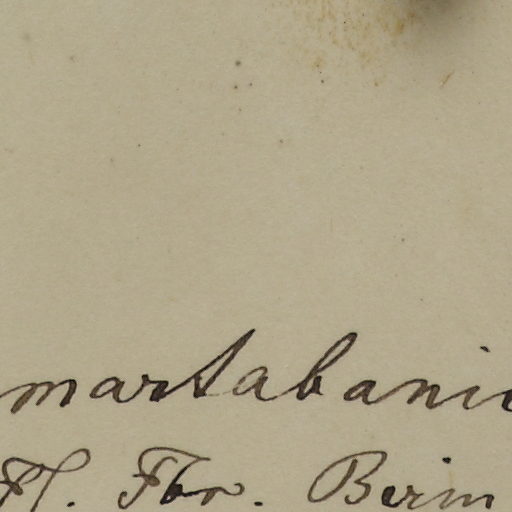 martabanic
Fl. For. Birm